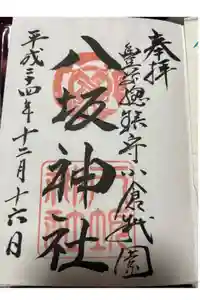 奉拝
豊前總鎮守小倉祇園
八坂神社
平成二四年十二月十六日